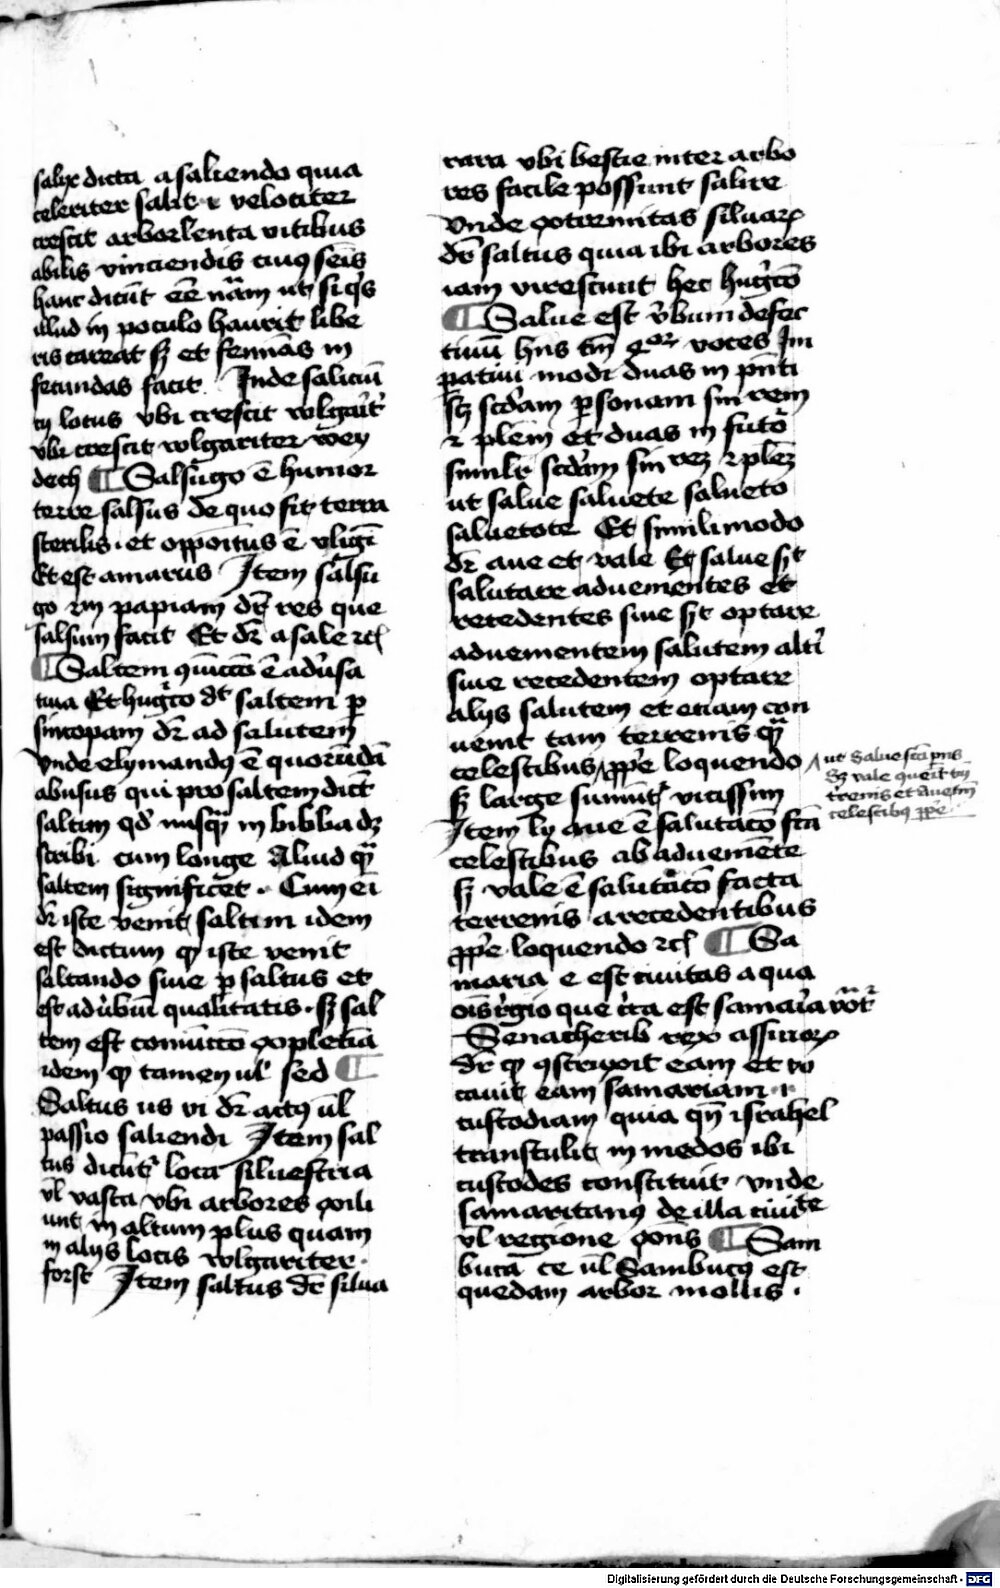 salix dicta a saliendo quia
celeriter salit ⁊ velociter
crescit arbor lenta vitibus
abilis vinciendis cuiꝰ semē
hanc dicūt eē nām ut si qͥs
illud in poculo haurit libe
ris careat sꝫ et femīas in
fecundas facit. Inde salictū
tj locus vbi crescit wlgarͥt
vbi crescit wlgariter wey
dech ¶ Salsugo ē humor
terre salsus de quo fit terra
sterilis . et oppoītus ē vligī
Et est amarus Item salsu
go ẜm papiam dr̄ res que
salsum facit Et dr̄ a sale ⁊cͣ
¶ Saltem ꝯiūctō ē adūsa
tiua Et hugͥcō dt saltem ꝑ
sincopam dr̄ ad salutem
vnde elymandꝰ ē quorūdā
abusus qui pro saltem dicūt
saltim qd̄ nusqͣꝫ in biblia dꝫ
scribi cum longe Aliud qͣꝫ
saltem significet . Cum eī
dr̄ iste venit saltim idem
est dictum ꝙ iste venit
saltando siue ꝑ saltus et
est adūbiū qualitatis . sꝫ sal
tem est coniūctō ꝯpletiā
idem ꝙ tamen ul̄ sed ¶
Saltus us ui dr̄ actꝰ ul̄
passio saliendi Item sal
tus dicūt̉ loca siluestria
vl̄ vasta vbi arbores ꝯsili
unt in altum plus quam
in alijs locis wlgariter .
forst Item saltus dr̄ silua
rara vbi bestie inter arbo
res facile possunt salire
vnde extremitas siluarꝝ
dr̄ saltus quia ibi arbores
iam virescunt hec hugͥcō
¶ Salue est v̉bum defec
tiuū hn̄s tm̄ qͣtuor voces Im
ꝑatiui modi duas in pn̄ti
sꝫ scd̄am ꝑsonam sin̄rem
⁊ plēm et duas in futō
similr̄ scd̄am sin̄rēꝫ ⁊ plēꝫ
ut salue saluete salueto
saluetote Et similimodo
dr̄ aue et vale Et salue sꝫt
salutare aduenientes et
recedentes siue sꝫt optare
aduenientem salutem altͥi
siue recedentem optare
alijs salutem et etiam con
uenit tam terrenis qͣꝫ
celestibus ꝓpͥe loquendo
ut Salue sct̄i p̄nis
Sꝫ vale queīt tm̄
tͥrenis et Aue tm̄
celestibꝰ ꝓpͥe
sꝫ large sumūt̉ vicissim
Item ly aue ē salutacō fct̄a
celestibus ab adueniēte
sꝫ vale ē salutacō facta
terrenis a recedentibus
ꝓpͥe loquendo ⁊cͣ ¶ Sa
maria e est ciuitas a qua
oīs rͥgio que cͥca est samaria vōt̉
Senacherib rex assiriorꝝ
dr̄ ꝙ ꝯstruxit eam et vo
cauit eam samariam .i.
custodiam quia qn̄ israhel
transtulit in medos ibi
custodes constituit vnde
samaritanꝰ de illa ciuitͣte
vl̄ regione exn̄s ¶ Sam
buca ce ul̄ Sambucꝰ est
quedam arbor mollis .
Digitalisierung gefördert durch die Deutsche Forschungsgemeinschaft - DFG